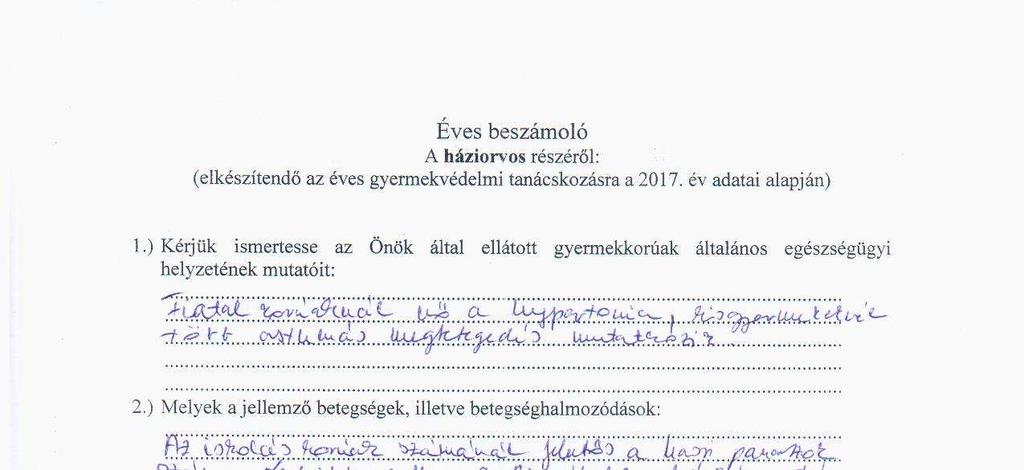 Éves beszámoló
A háziorvos részéről:
(elkészítendő az éves gyermekvédelmi tanácskozásra a 2017. év adatai alapján)
1.) Kérjük ismertesse az Önök által ellátott gyermekkorúak általános egészségügyi
helyzetének mutatóit:
Fiatal korúaknál nő a hypertonia, kisgyermekeknél
több asthmás megbetegedés mutatkozik.
2.) Melyek a jellemző betegségek, illetve betegséghalmozódások:
Az iskolás korúak számánál jelentős a